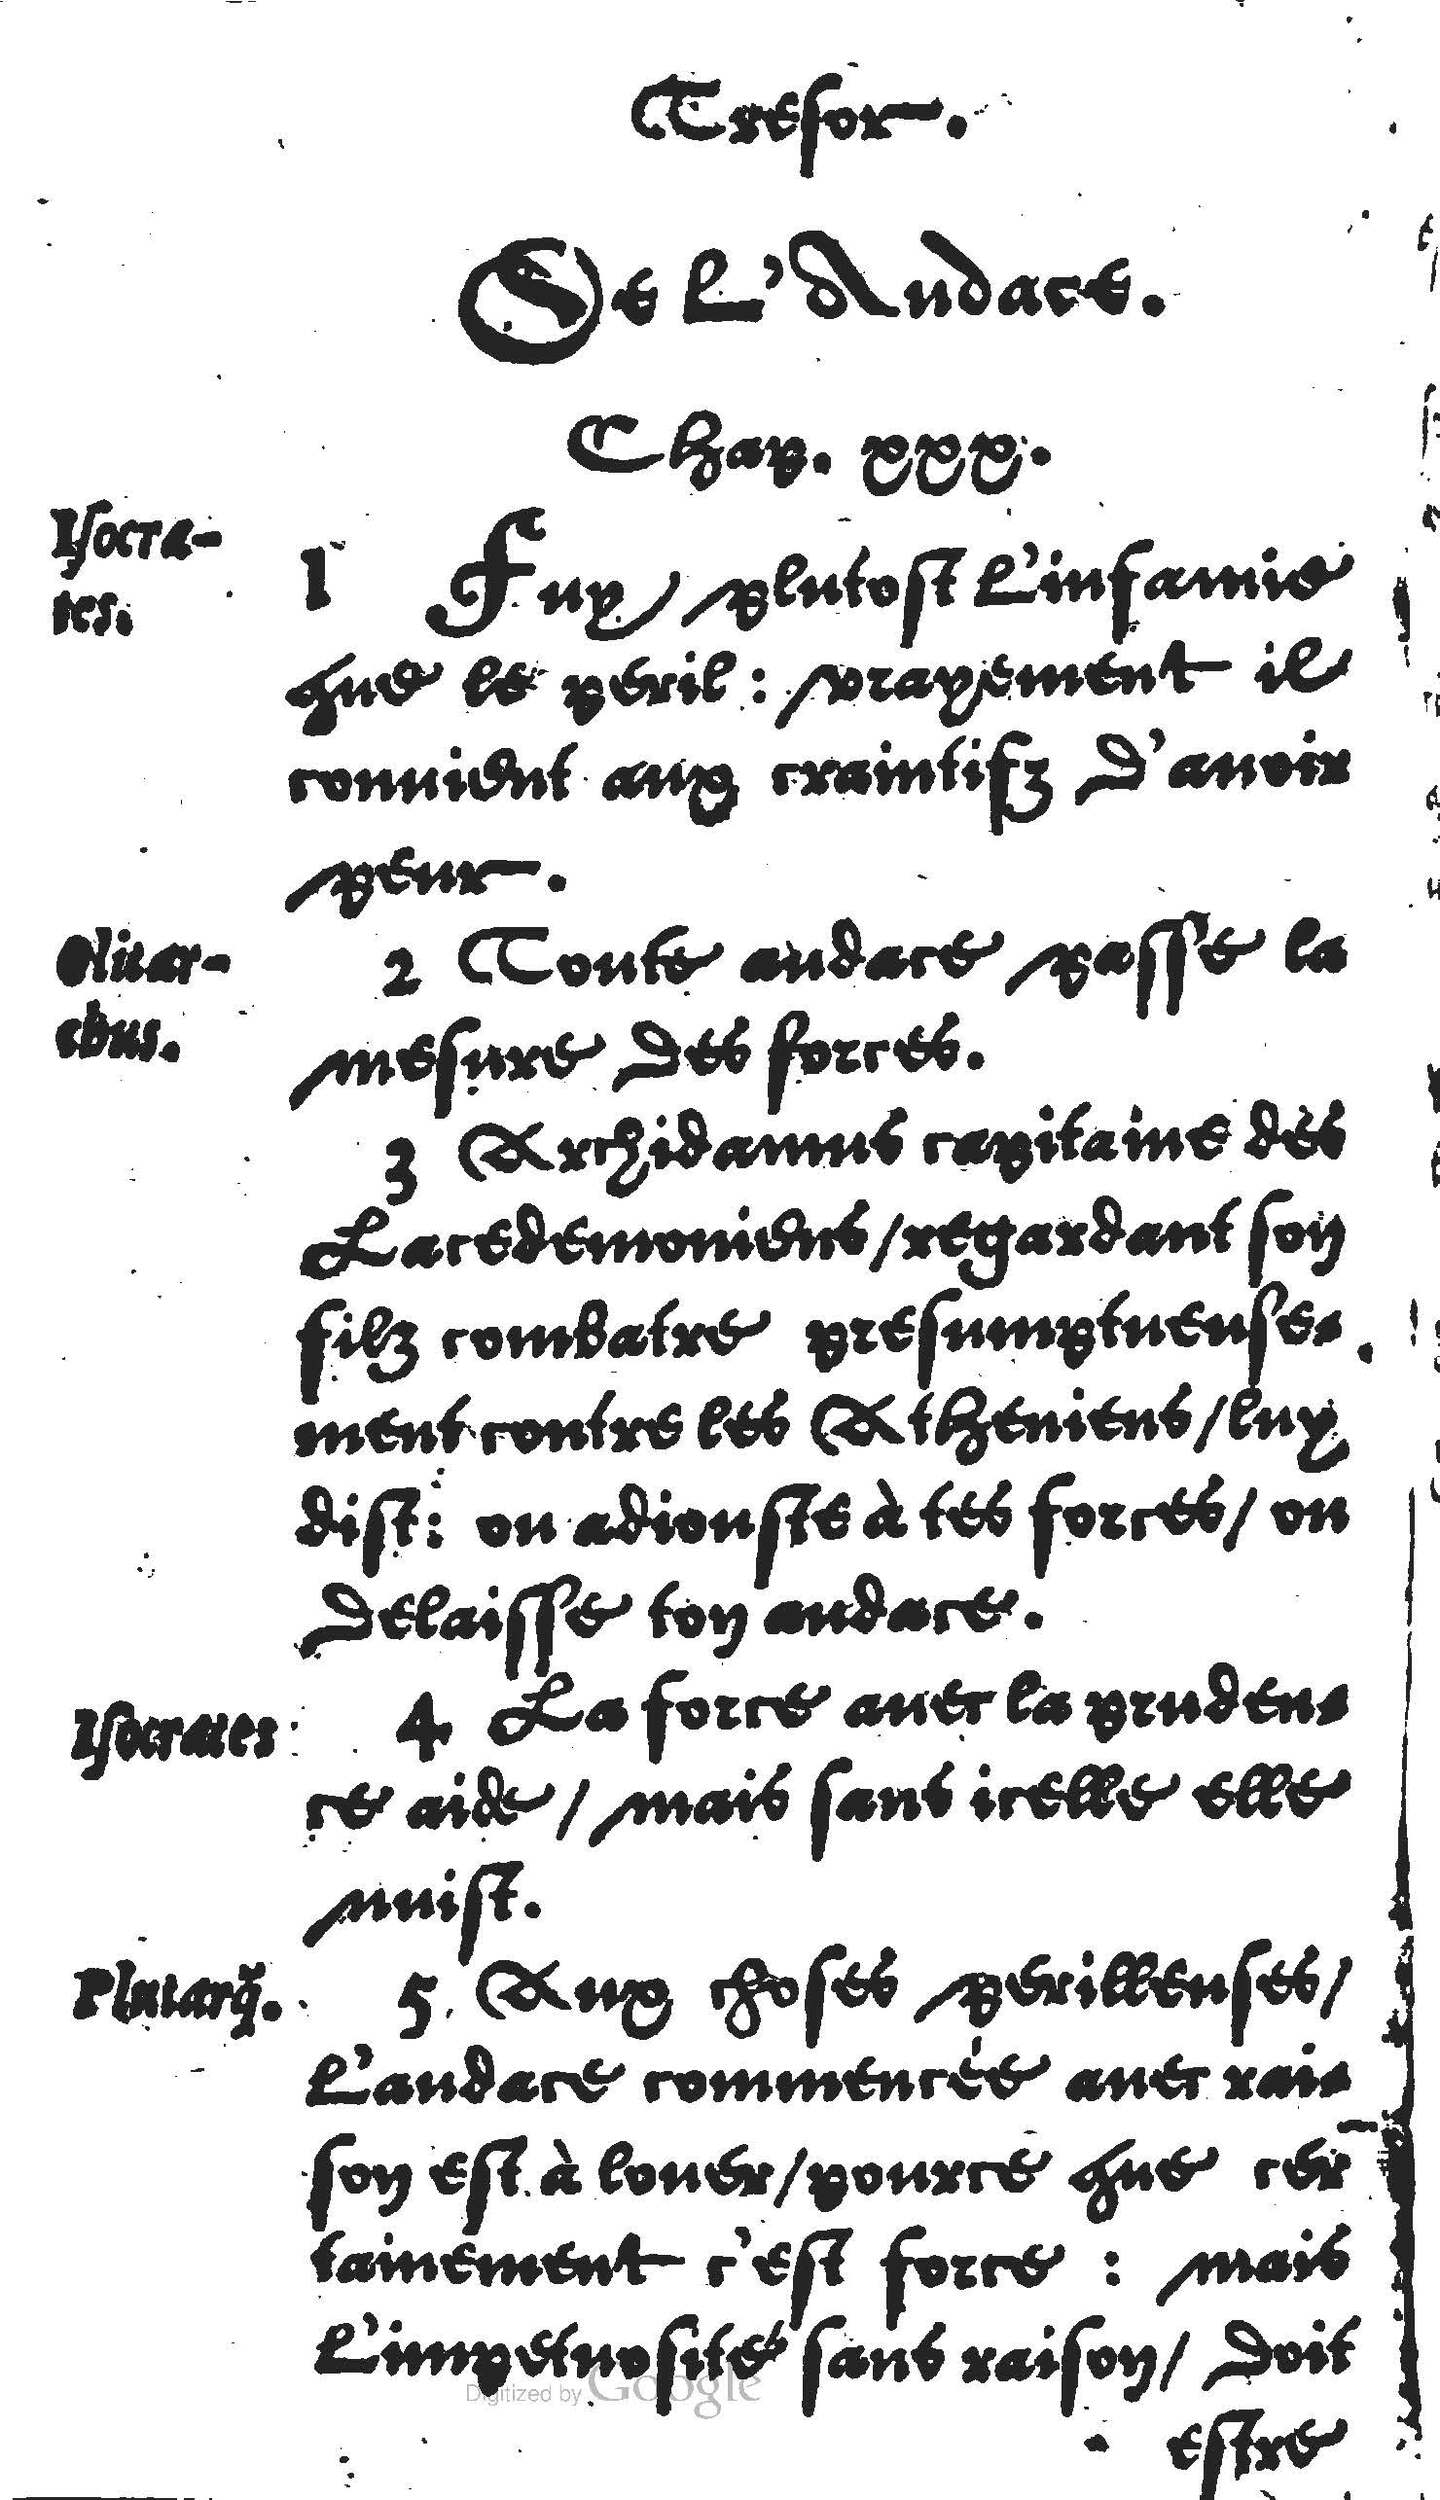 Tresor.
De L'Audace.
Chap. xxx.
Isocra-
tes.
1 Fuy plutost L'infamie
que le peril : vrayement il
conuient aux craintifz d'auoir
peur.
Plutar-
chus.
2 Toute audace passe la
mesure des forces.
3 Archidamus capitaine des
Lacedemoniens/regardant son
filz combatre presumptueuse-
ment contre les Atheniens/luy
dist: ou adiouste à tes forces/ ou
delaisse ton audace.
Isocrates
4 La force auec la pruden-
ce aide / mais sans icelle elle
nuist.
Plutarq̃.
5 Aux choses perilleuses/
L'audace commencée auec rai-
son est à louer/pource que cer
tainement c'est force : mais
L'impetuosité sans raison/ doit
estre
Digitized by Google